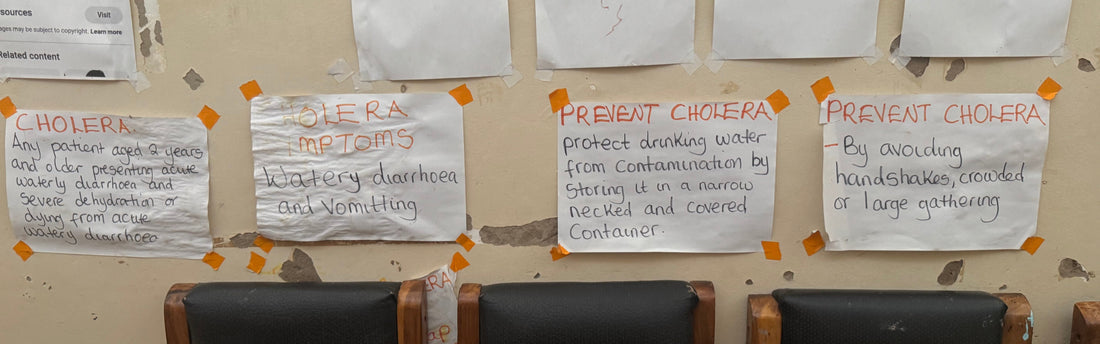 sources
Visit
ages may be subject to copyright. Learn more
Related content
CHOLERA.
Any patient aged 2 years
and older presenting acute
waterly diarrhoea and
severe dehydration or
dying from acute
watery diarrhoea
OLERA
MPTOMS
Watery diarrhoea
and Vomitting
PREVENT CHOLERA
protect drinking water
from contamination by
storing it in a narrow
necked and covered
container.
PREVENT CHOLERA
- By avoiding
handshakes, crowded
or large gathering
ERA